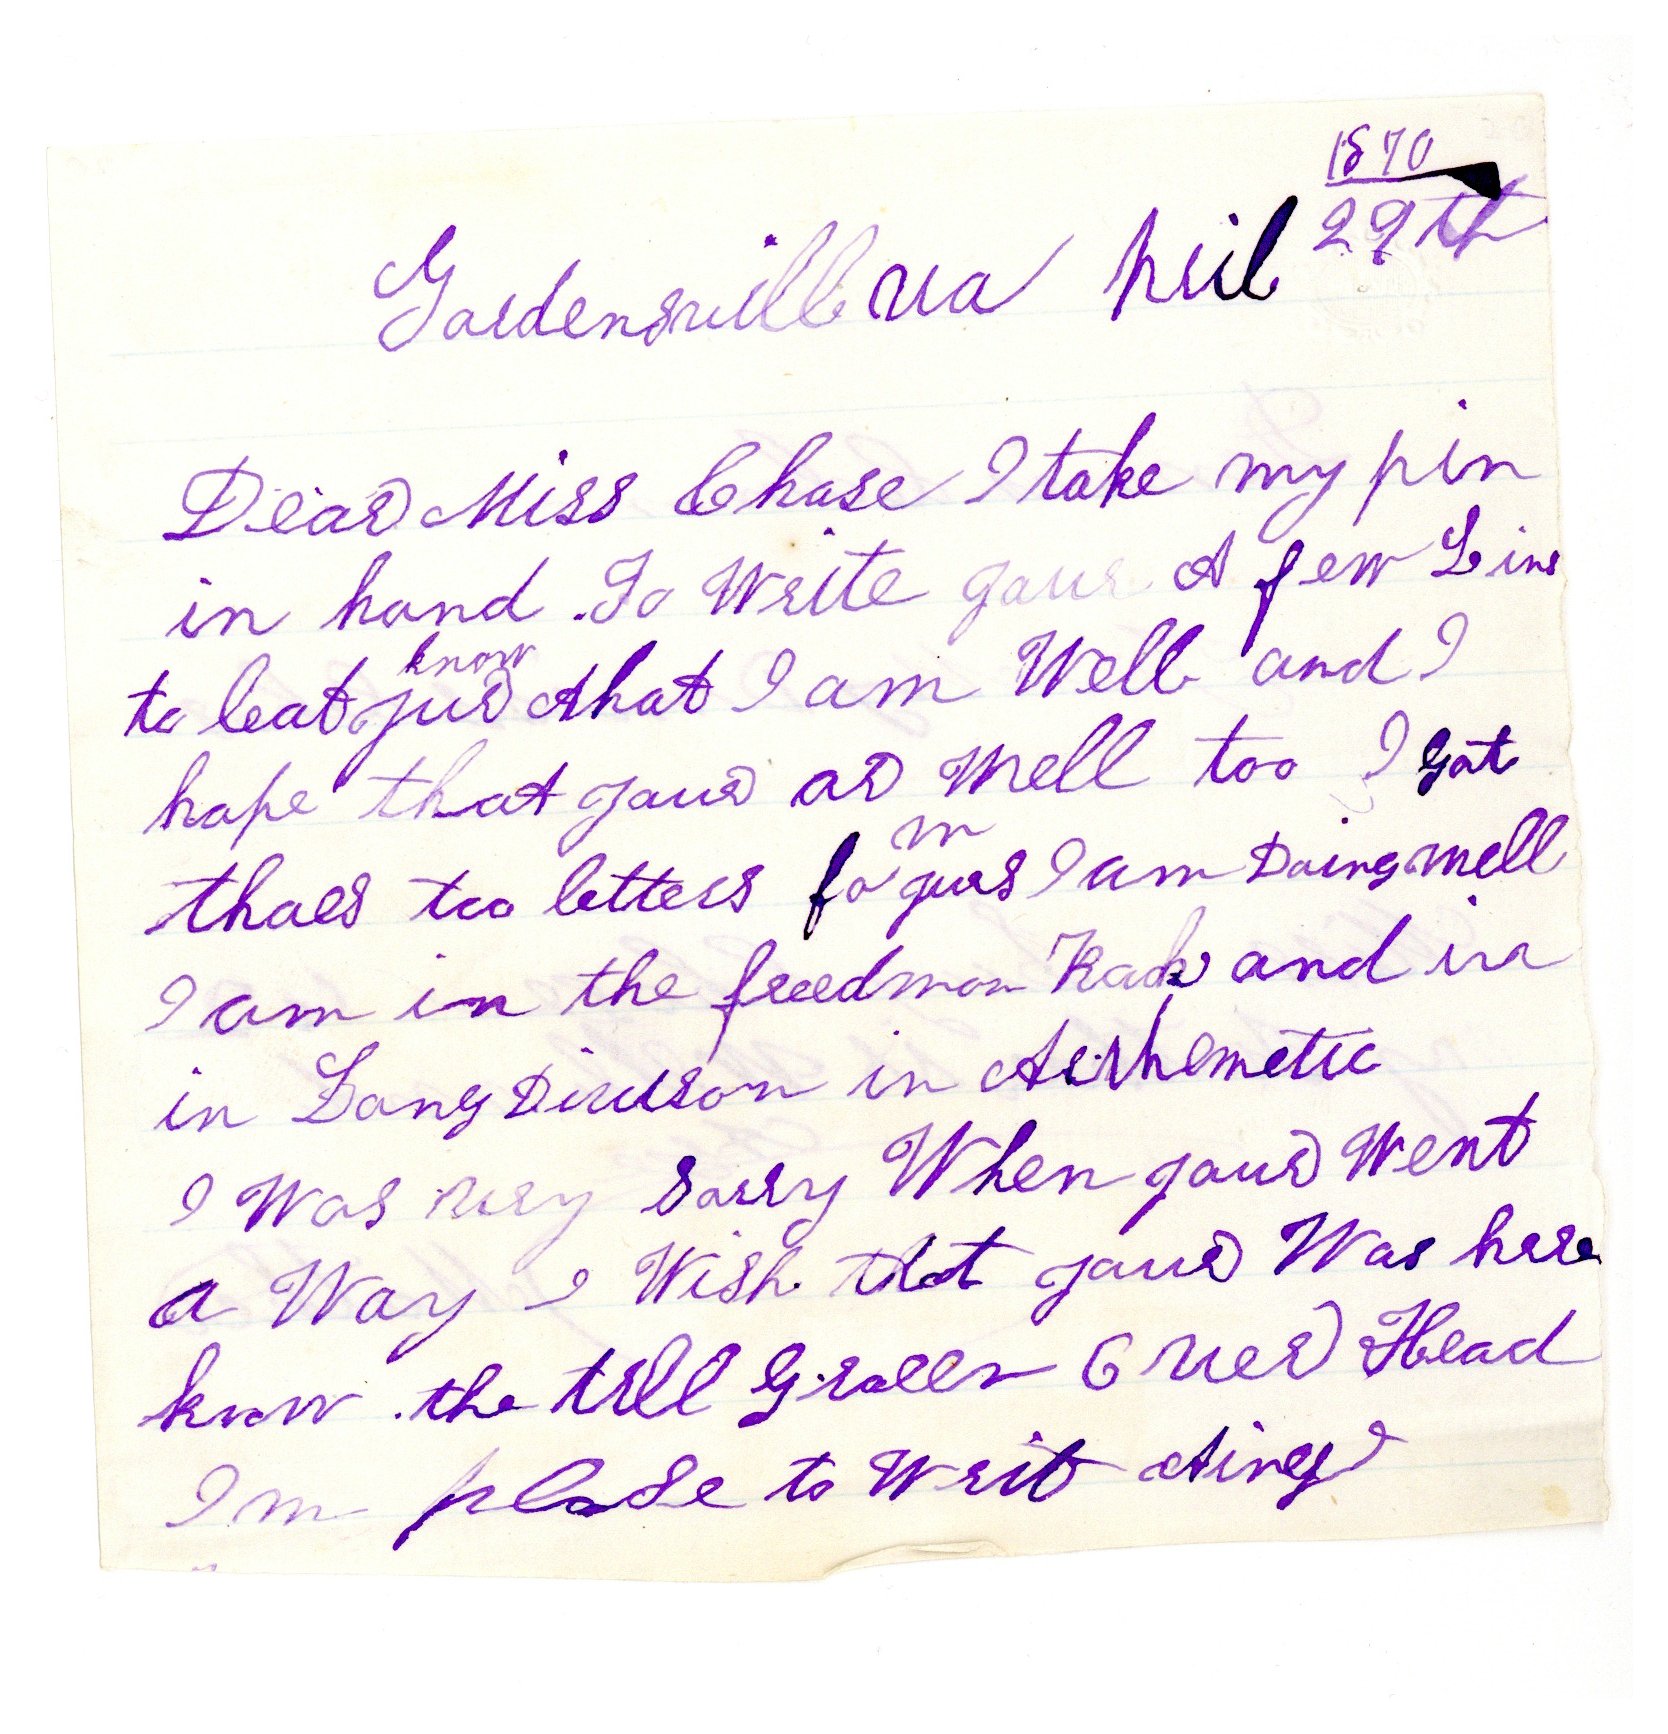 1870
Gordensvill va pril 29th
Dear Miss Chase I take my pin
in hand To Write your A few Line
to leat your know that I am Well and I
hope that your ar Well too I got
thoes too letters fom your I am Doing well
I am in the freedmon Book and in
in Long Divison in Arirhemetic
I Was very sorry When your Went
a Way I Wish that your Was here
know the trees Green Over Head
I m please to Writ